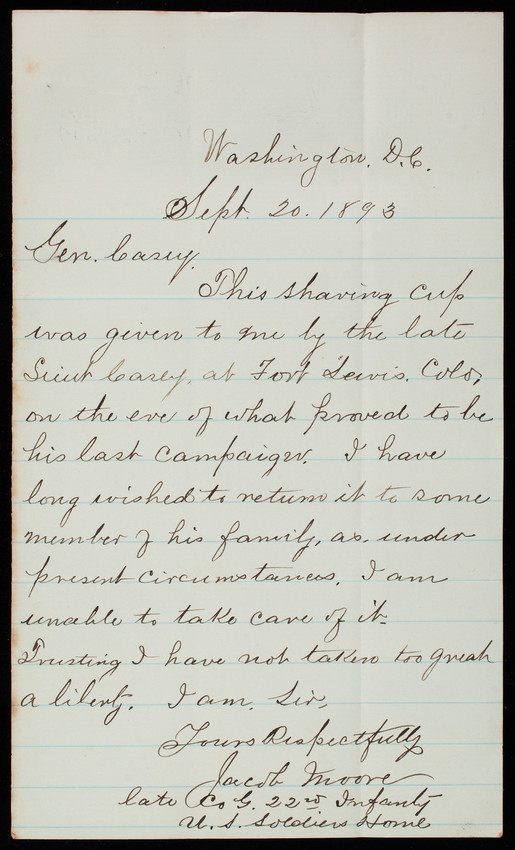 Washington, D.C.
Sept. 20. 1893
Gen. Casey.
This shaving cup
was given to me by the late
Lieut Casey, at Fort Lewis, Colo,
on the eve of what proved to be
his last campaign. I have
long wished to return it to some
member of his family, as, under
present circumstances, I am
unable to take care of it.
Trusting I have not taken too great
a liberty. I am, Sir,
Yours Respectfully
Jacob Moore
late Co G. 22nd Infanty
U. S. Soldiers Home